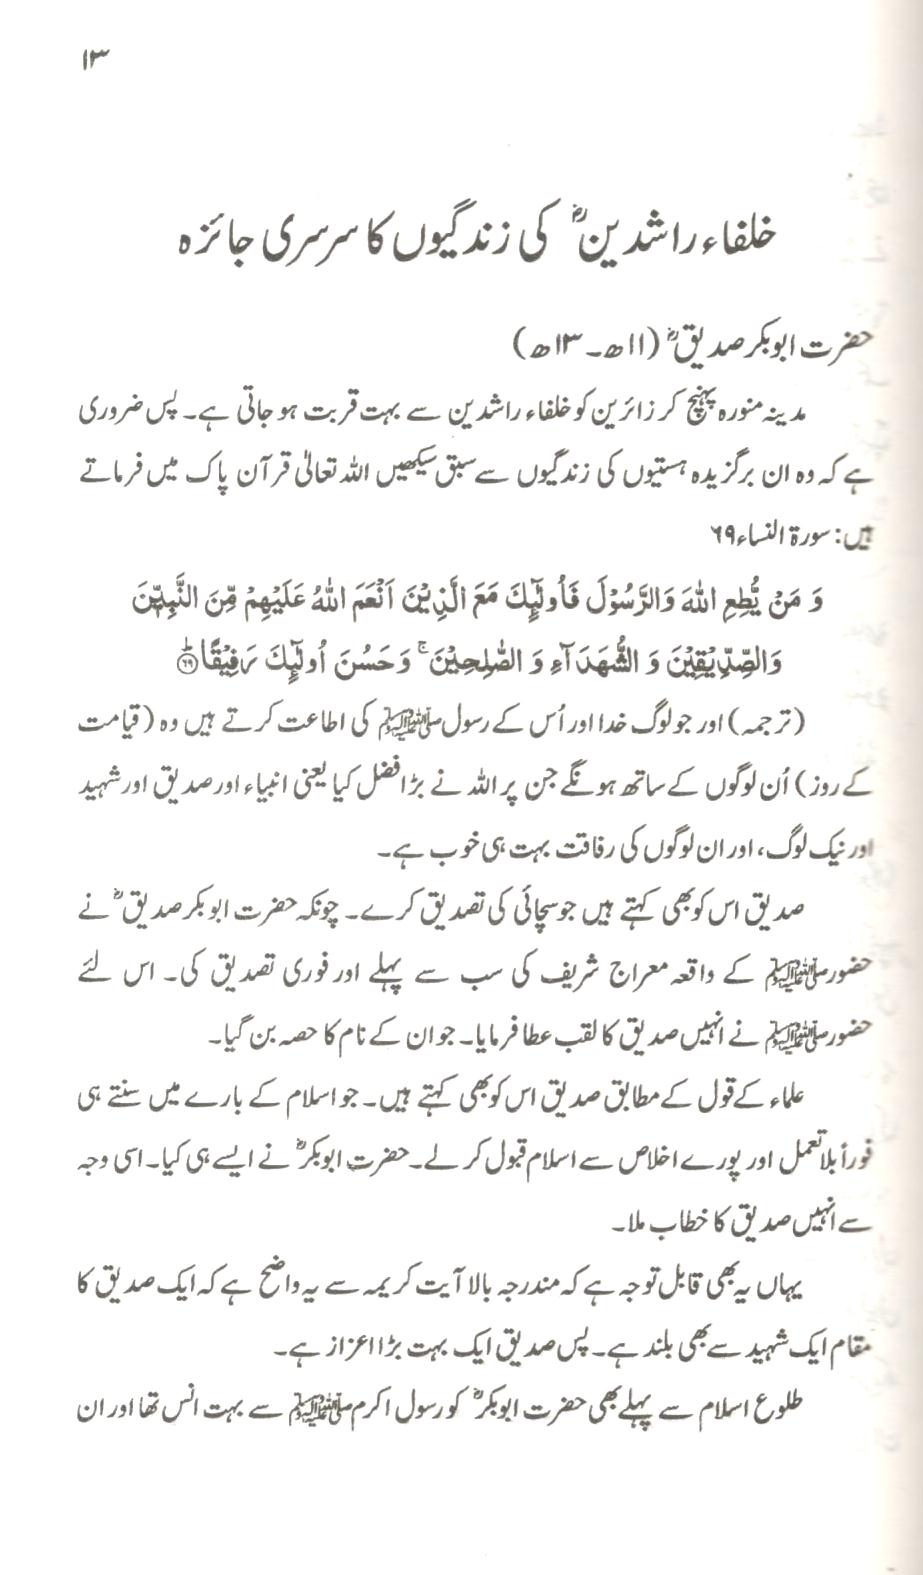 ۱۳
خلفاء راشدینؓ کی زندگیوں کا سرسری جائزہ
حضرت ابوبکر صدیقؓ (۱۱ھ۔ ۱۳ھ)
مدینہ منورہ پہنچ کر زائرین کو خلفاء راشدین سے بہت قربت ہو جاتی ہے۔ پس ضروری
ہے کہ وہ ان برگزیدہ ہستیوں کی زندگیوں سے سبق سیکھیں اللہ تعالیٰ قرآن پاک میں فرماتے
ہیں: سورۃ النساء ۶۹
وَ مَنْ يُّطِعِ اللّٰهَ وَالرَّسُوْلَ فَاُولٰٓئِكَ مَعَ الَّذِيْنَ اَنْعَمَ اللّٰهُ عَلَيْهِمْ مِّنَ النَّبِيّٖنَ
وَالصِّدِّيْقِيْنَ وَ الشُّهَدَآءِ وَ الصّٰلِحِيْنَ ۚ وَ حَسُنَ اُولٰٓئِكَ رَفِيْقًا ؕ﴿۶۹﴾
(ترجمہ) اور جو لوگ خدا اور اُس کے رسول ﷺ کی اطاعت کرتے ہیں وہ (قیامت
کے روز) اُن لوگوں کے ساتھ ہونگے جن پر اللہ نے بڑا فضل کیا یعنی انبیاء اور صدیق اور شہید
اور نیک لوگ، اور ان لوگوں کی رفاقت بہت ہی خوب ہے۔
صدیق اس کو بھی کہتے ہیں جو سچائی کی تصدیق کرے۔ چونکہ حضرت ابوبکر صدیقؓ نے
حضور ﷺ کے واقعہ معراج شریف کی سب سے پہلے اور فوری تصدیق کی۔ اس لئے
حضور ﷺ نے انہیں صدیق کا لقب عطا فرمایا۔ جو ان کے نام کا حصہ بن گیا۔
علماء کے قول کے مطابق صدیق اس کو بھی کہتے ہیں۔ جو اسلام کے بارے میں سنتے ہی
فوراً بلا تعمل اور پورے اخلاص سے اسلام قبول کر لے۔ حضرت ابوبکرؓ نے ایسے ہی کیا۔ اسی وجہ
سے انہیں صدیق کا خطاب ملا۔
یہاں یہ بھی قابل توجہ ہے کہ مندرجہ بالا آیت کریمہ سے یہ واضح ہے کہ ایک صدیق کا
مقام ایک شہید سے بھی بلند ہے۔ پس صدیق ایک بہت بڑا اعزاز ہے۔
طلوع اسلام سے پہلے بھی حضرت ابوبکرؓ کو رسول اکرم ﷺ سے بہت انس تھا اور ان